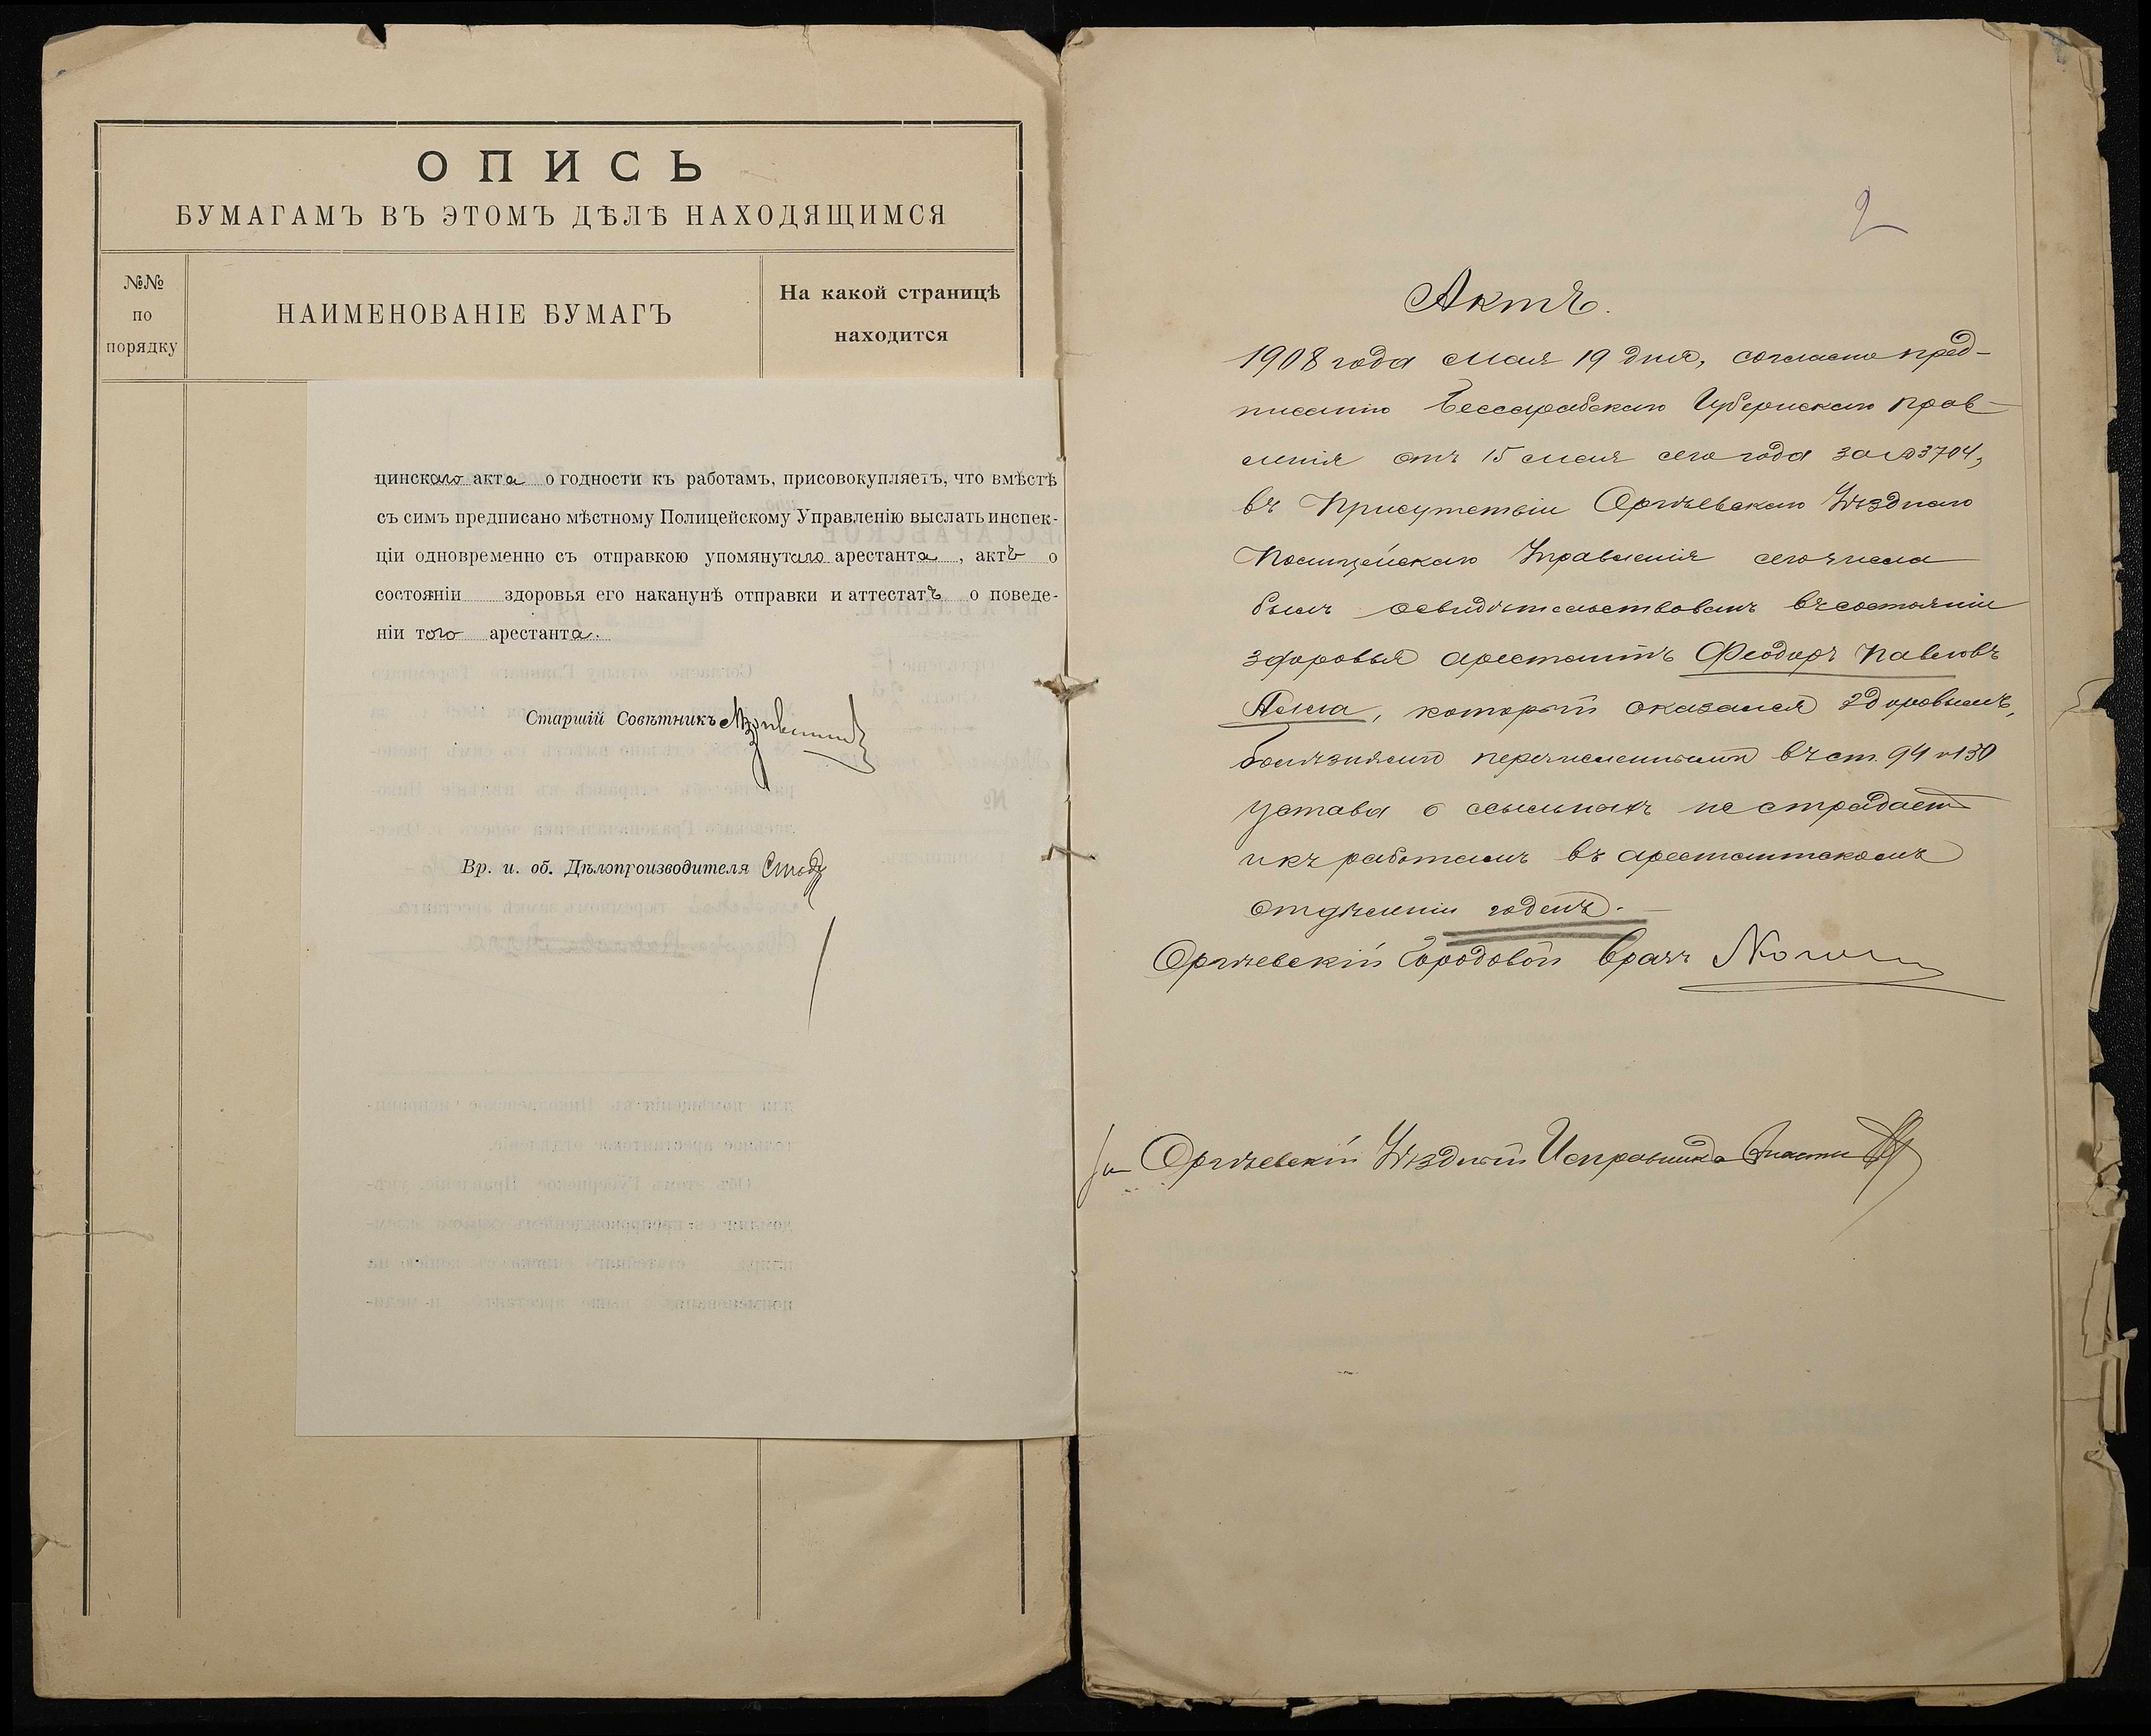 ОПИСЬ
БУМАГАМЪ ВЪ ЭТОМЪ ДѢЛѢ НАХОДЯЩИМСЯ
№№
по
порядку
НАИМЕНОВАНІЕ БУМАГЪ
На какой страницѣ
находится
цинскаго акта о годности къ работамъ, присовокупляетъ, что вмѣстѣ
съ симъ предписано мѣстному Полицейскому Управленію выслать инспек-
ціи одновременно съ отправкою упомянутаго арестанта, актъ о
состояніи здоровья его наканунѣ отправки и аттестатъ о поведе-
ніи того арестанта.
Старшій Совѣтникъ
Вр. и. об. Дѣлопроизводителя
2
Актъ.
1908 года мая 19 дня, согласно пред-
писанію Бессарабскаго Губернскаго Прав-
ленія отъ 15 мая сего года за № 3704,
въ Присутствіи Оргѣевскаго Уѣзднаго
Полицейскаго Управленія сего числа
былъ освидѣтельствованъ въ состояніи
здоровья арестантъ Феодоръ Павловъ
который оказался здоровымъ,
болѣзнями перечисленными въ ст. 94 и 130
устава о ссыльныхъ не страдаетъ
и къ работамъ въ арестантскомъ
отдѣленіи годенъ.
Оргѣевскій Городовой Врачъ
За Оргѣевскій Уѣздный Исправника